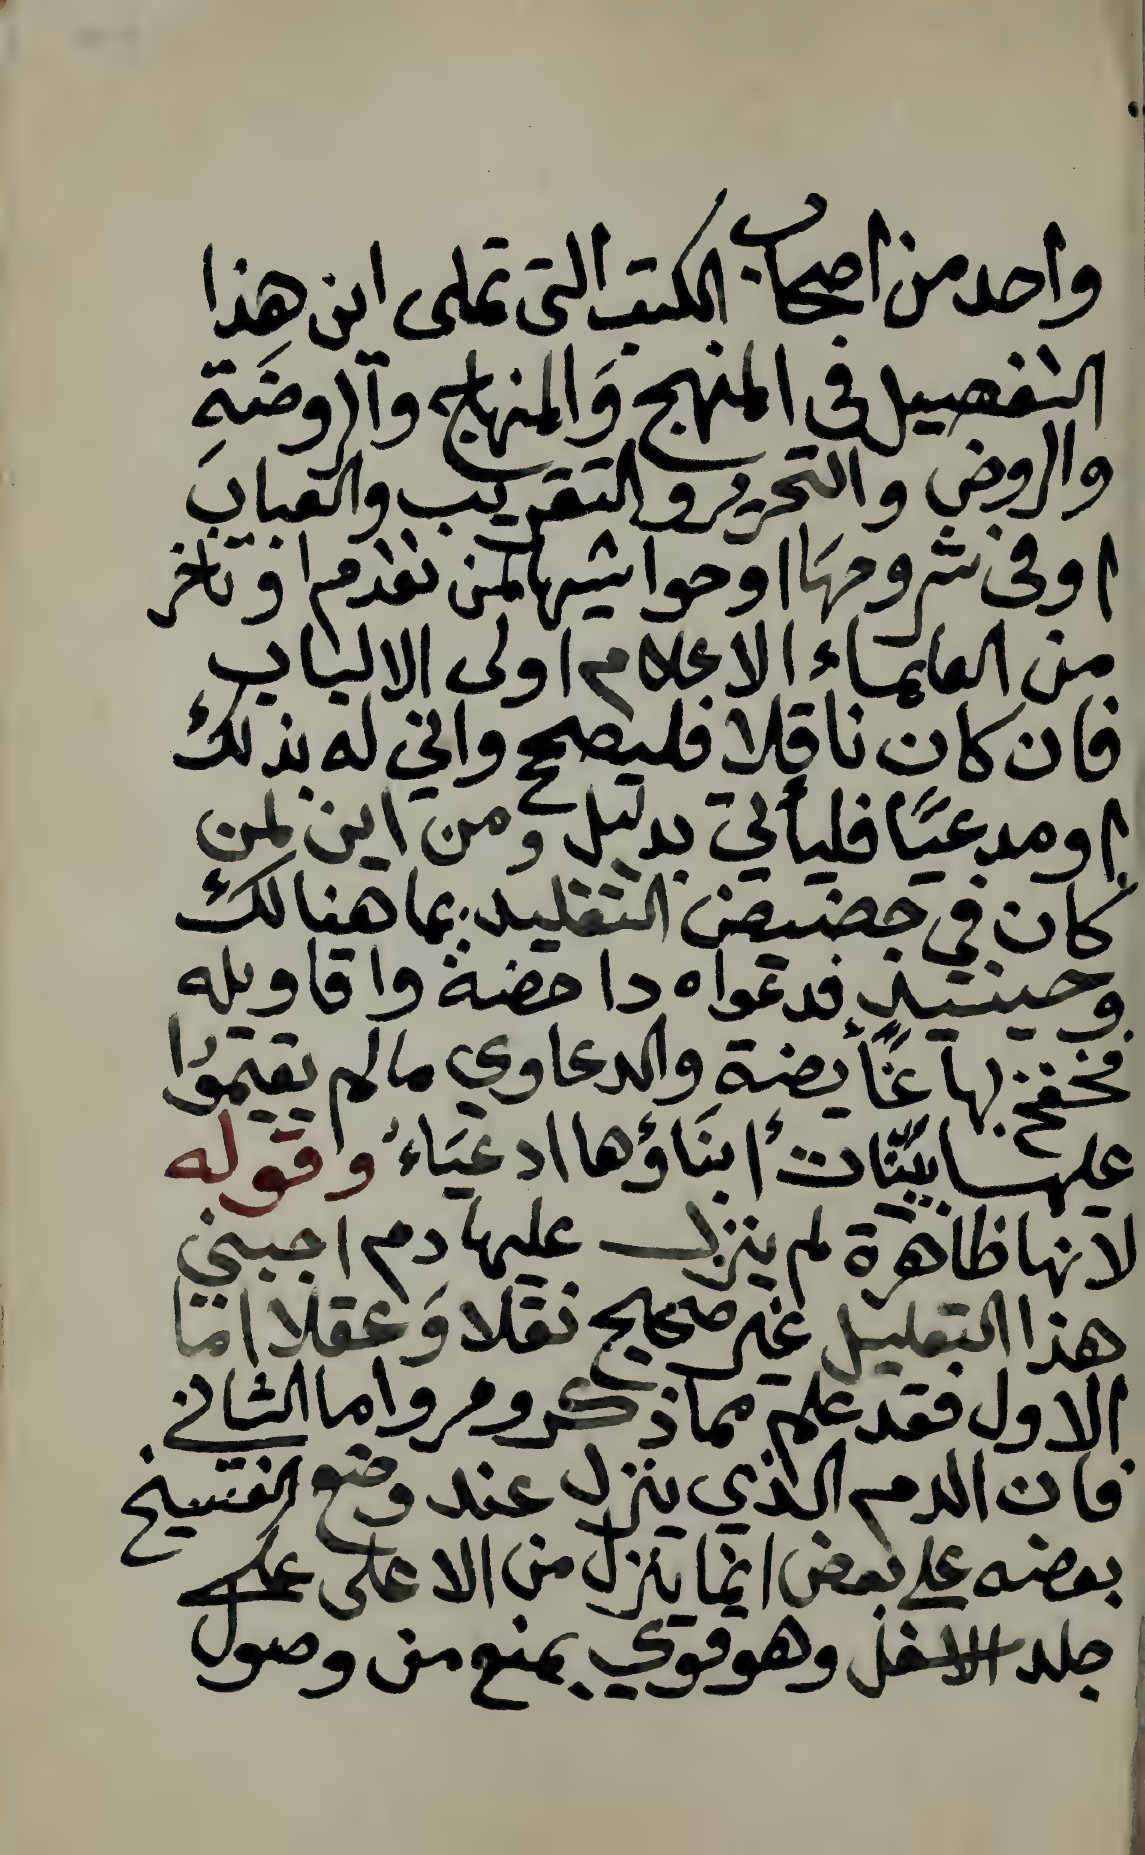 واحد من اصحاب الكتب التى تملى اين هذا
التفصيل فى المنهج وَالمنهاج وآلروضَةِ
والروض والتحرير والتقريب والعباب
اوفى شروحهَا اوحواشيها لمن تقدم اوتاخر
من العلماء الاعلام اولى الالباب
فان كان ناقلا فليصحح واني له بذلك
او مدعيًا فليأتي بدليل ومن اين لمن
كان في حضيض التقليد بما هنالك
وحينئيذ فدعواه داحضة واقاويله
بها غائضة والدعاوي مالم يقيموُا
عليها بيّنات أبنَاؤها ادعيَاءُ وقوله
لانها ظاهرة لم ينزل عليها دم اجبني
هذا التعليل غير صحيح نقلا وَعقلا امّا
الاول فقد علم مما ذكر ومر واما الثاني
فان الدم الذي ينزل عند وضع الفتسيخ
بعضه على بعض انما ينزل من الاعلى على
جلد الاسفل وهو قوي يمنع من وصول